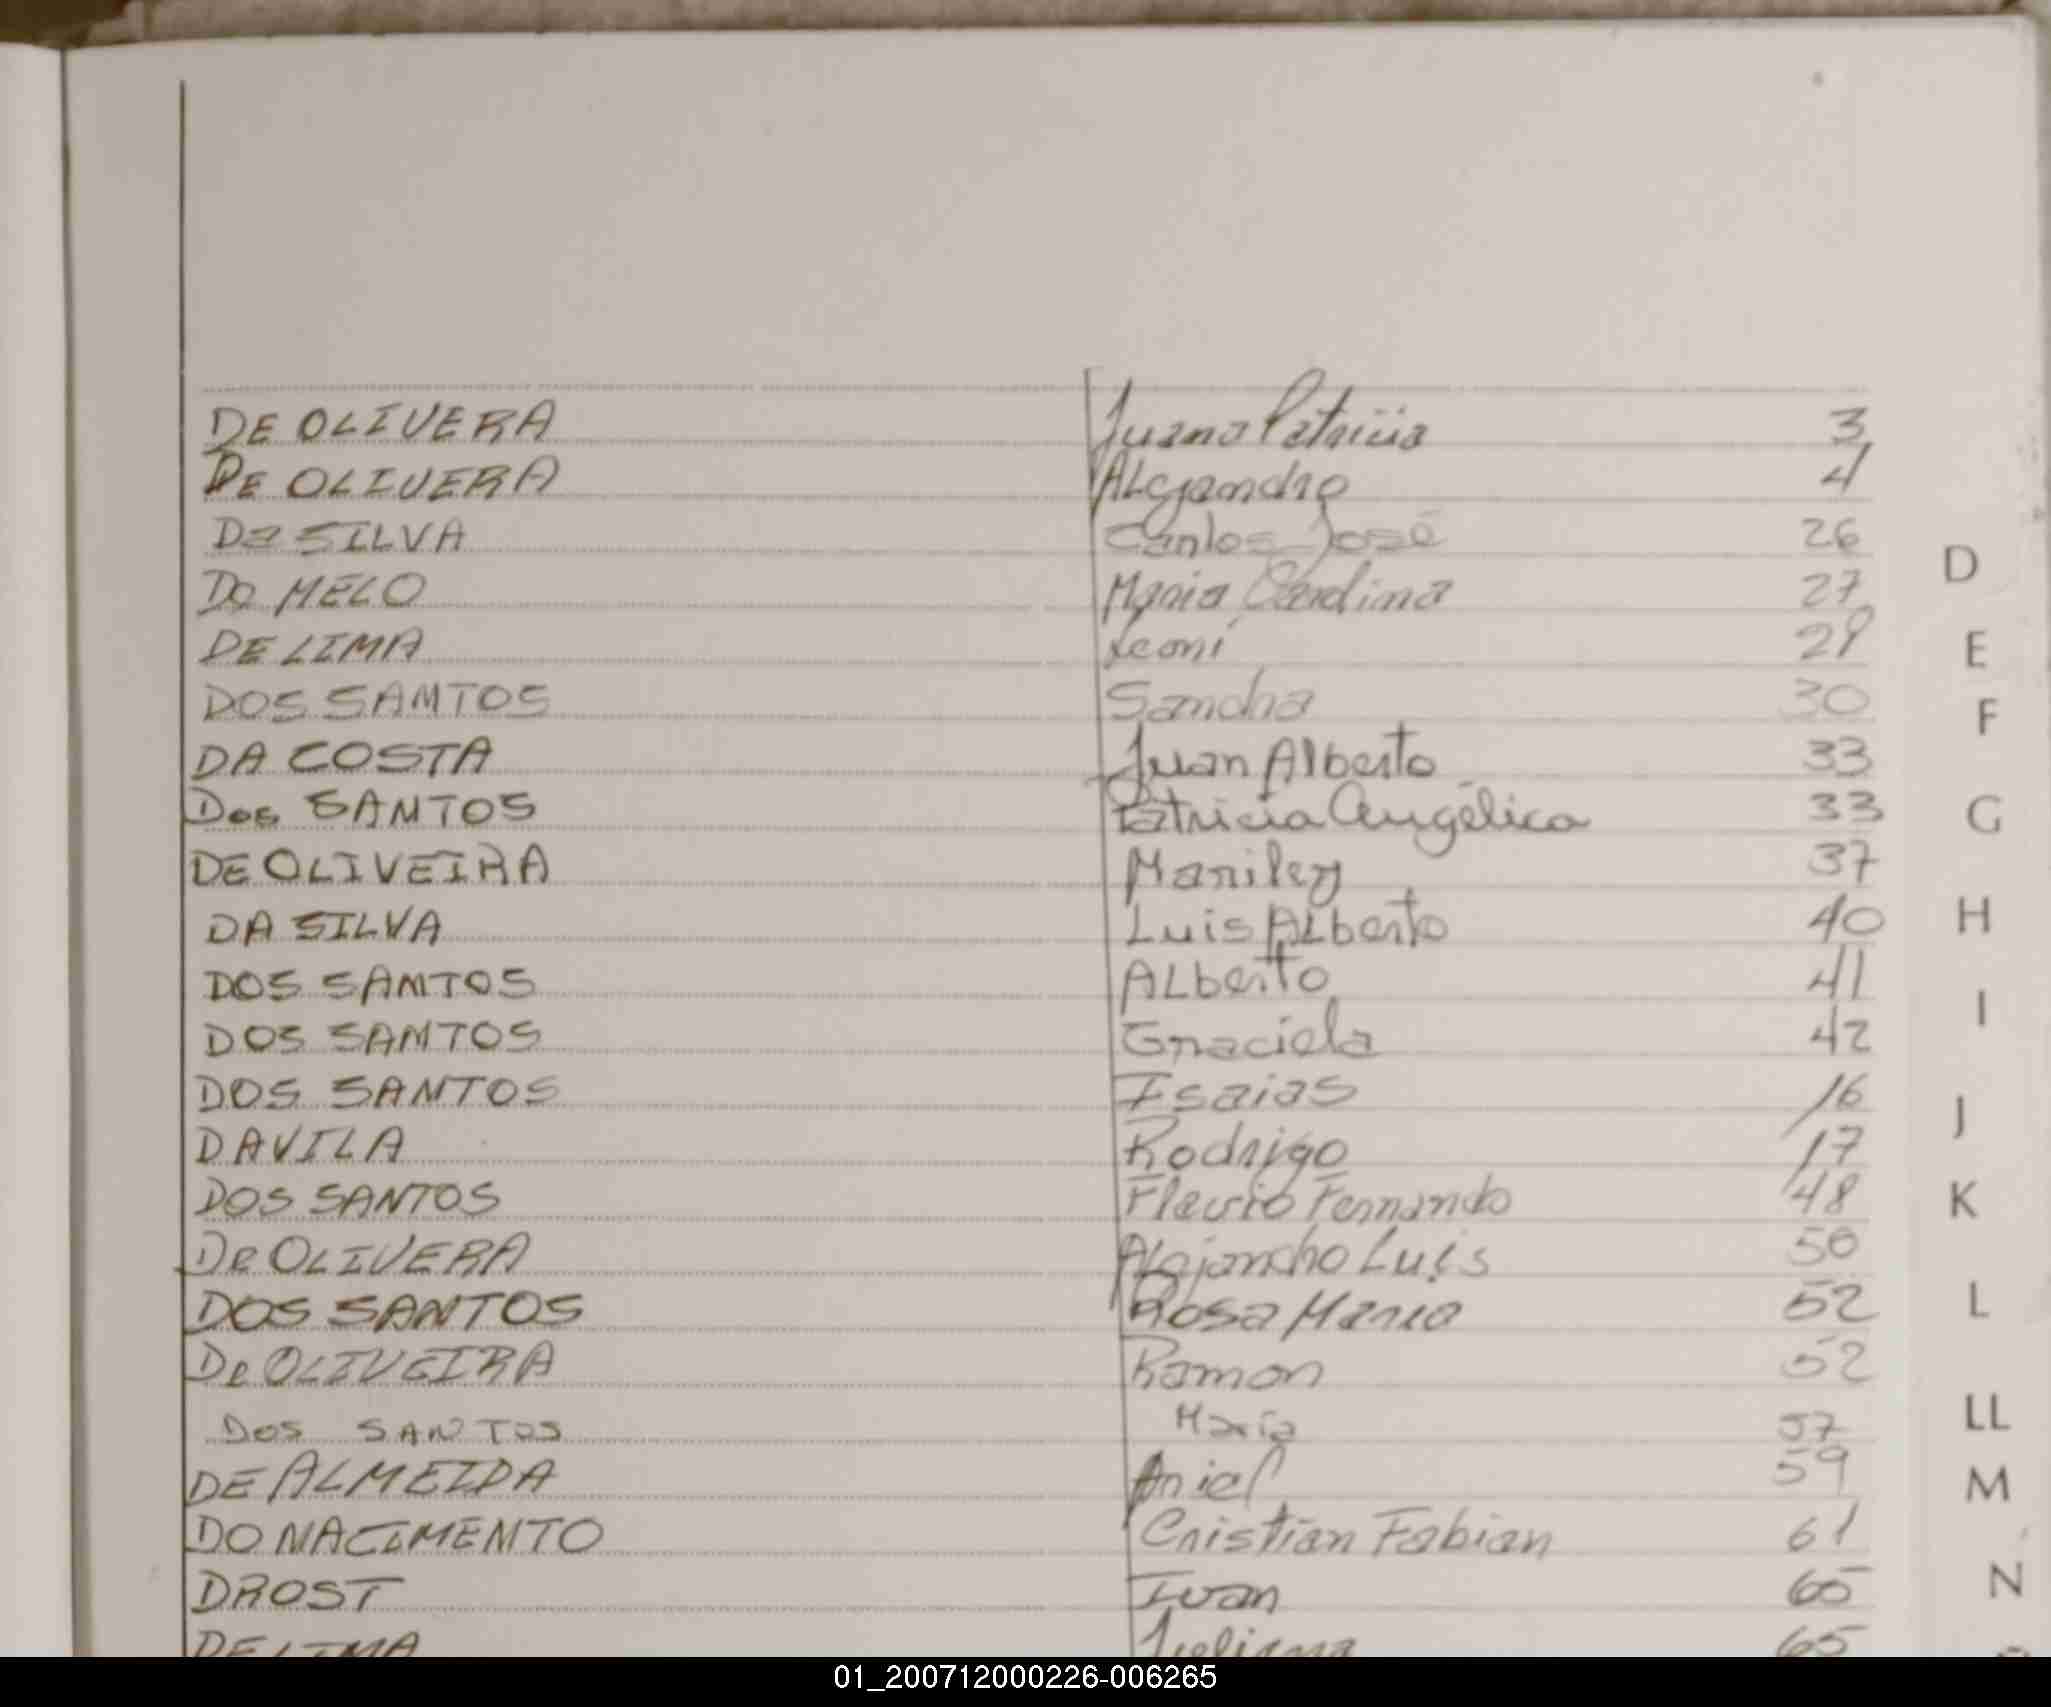 DE OLIVERA Juana Patricia 3
DE OLIVERA Alejandro 4
Da SILVA Carlos José 26
Do MELO Maria Carolina 27
DE LIMA Leoni 29
DOS SAMTOS Sandra 30
DA COSTA Juan Alberto 33
Dos SANTOS Patricia Angélica 33
DE OLIVEIRA Mariley 37
DA SILVA Luis Alberto 40
DOS SAMTOS Alberto 41
DOS SAMTOS Graciela 42
DOS SANTOS Isaias 16
DAVILA Rodrigo 17
DOS SANTOS Flavio Fernando 48
De OLIVERA Alejandro Luis 50
DOS SANTOS Rosa Maria 52
De OLIVEIRA Ramon 52
Dos SANTOS María 57
DE ALMEIDA Ariel 59
DO NACIMENTO Cristian Fabian 61
DROST Ivan 65
DE LIMA Juliana 65
D
E
F
G
H
I
J
K
L
LL
M
N
01_200712000226-006265